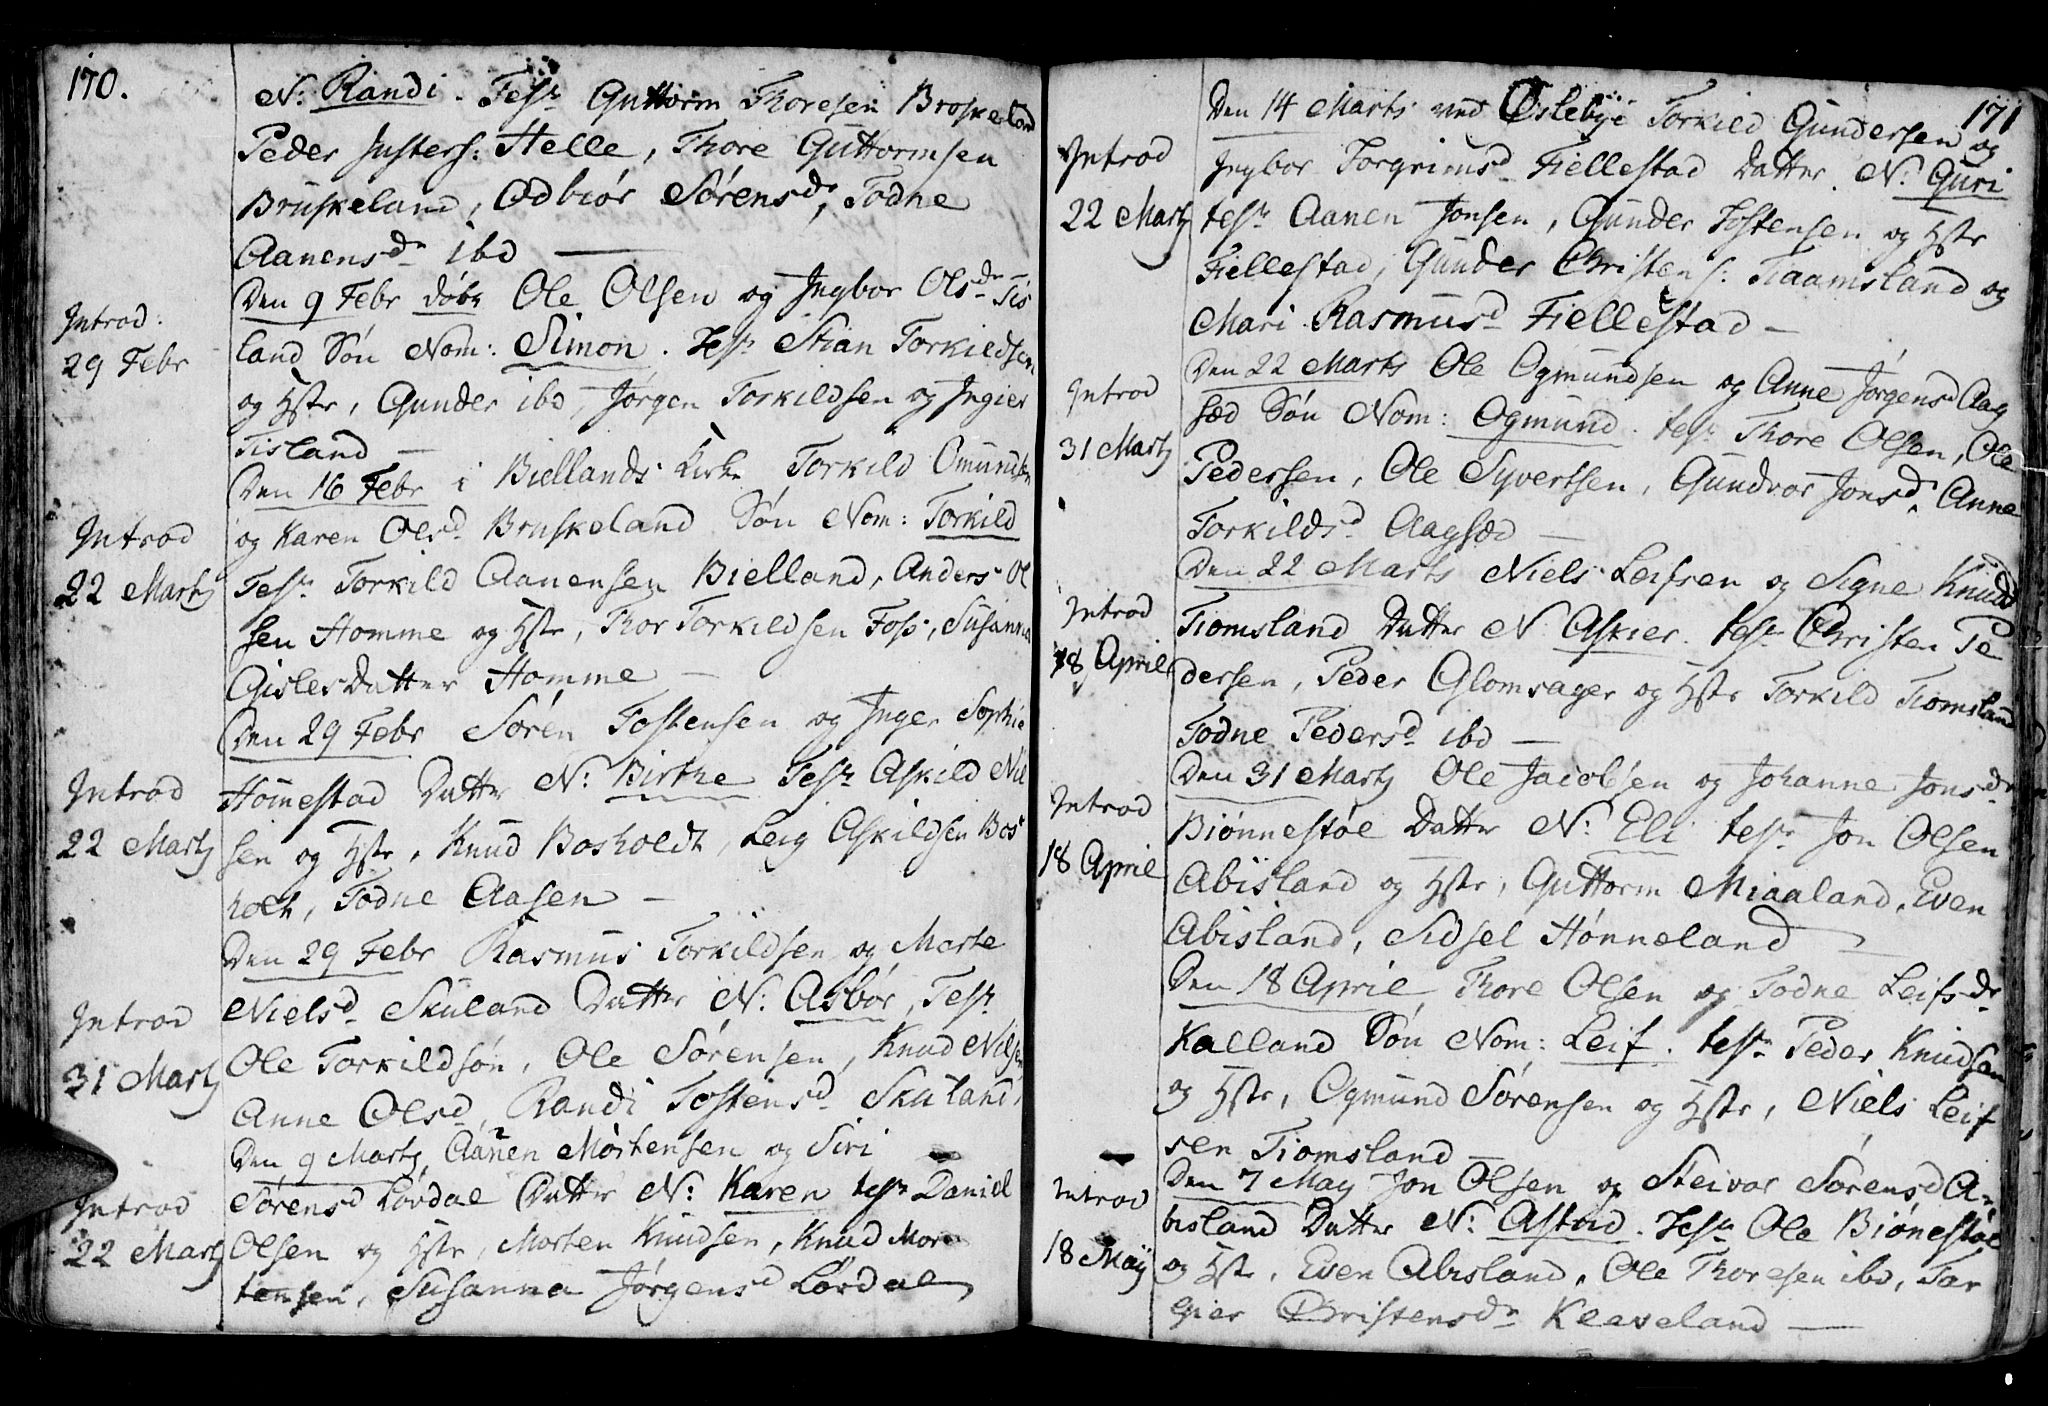 170.
N: Randi. Test Guttorm Thoresen Bruskeland
Peder Justers: Helle, Thore Guttormsen
Bruskeland, Odbiør Sørensd. Todne
Aanensdr ibd
Introd:
29 Febr
Den 9 Febr døbt Ole Olsen og Ingbor Olsdr Tis
land Søn Nom: Simon. Test Stian Torkildsen
og Hstr, Gunder ibd, Jørgen Torkildsen og Ingier
Tisland
Introd
22 Martz
Den 16 Febr i Biellands Kirke Torkild Omundsen
og Karen Olsd Bruskeland Søn Nom: Torkild
Test Torkild Aanensen Bielland, Anders Ol
sen Homme og Hstr, Thor Torkildsen Foss, Susanna
Gislesdatter Homme
Introd
22 Martz
Den 29 Febr Søren Tostensen og Inger Sophie
Homestad Datter N: Birthe Test Askild Niel
sen og Hstr, Knud Bosholdt, Leig Askildsen Bos
holt, Todne Aasen
Introd
31 Martz
Den 29 Febr Rasmus Torkildsen og Marte
Nielsd Skuland Datter N: Asbør, Test
Ole Torkildsøn, Ole Sørensen, Knud Nilsen
Anne Olsd, Randi Tostensd Skuland,
Introd
22 Martz
Den 9 Martz Aanen Mortensen og Siri
Sørensd Lovdal Datter N: Karen test Daniel
Olsen og Hstr, Morten Knudsen, Knud Mor
tensen, Susanna Jørgensd Løvdal
171
Introd
22 Martz
Den 14 Marts ved Øslebye Torkild Gundersen og
Ingbor Torgrimsd Fiellestad Datter N: Guri
test Aanen Jonsen, Gunder Tostensen og Hstr
Fiellestad, Gunder Christens: Tiaamsland og
Mari Rasmusd Fiellestad
Introd
31 Martz
Den 22 Marts Ole Ogmundsen og Anne Jørgensd Aag
sæd Søn Nom: Ogmund. test Thore Olsen, Ole
Pedersen, Ole Syvertsen, Gundvor Jonsd, Anne
Torkildsd Aagsæd
Introd
18 April
Den 22 Marts Niels Leifsen og Signe Knudsd
Tiomsland Datter N Askier. test Christen Pe
dersen, Peder Glomsager og Hstr Torkild Tiomsland
Todne Pedersd ibd
Introd
18 April
Den 31 Martz Ole Jacobsen og Johanne Jonsdr
Biønnestøl Datter N: Eli test Jon Olsen
Abisland og Hstr, Guttorm Miaaland, Even
Abisland, Sidsel Hønneland
Den 18 April Thore Olsen og Todne Leifsdr
Kalland Søn Nom: Leif. test Peder Knudsen
og Hstr, Ogmund Sørensen og Hstr, Niels Leif
sen Tiomsland
Introd
18 May
Den 7 May Jon Olsen og Steivor Sørensd A-
bisland Datter N: Astad. Test Ole Biønestøl
og Hstr, Even Abisland, Ole Thoresen ibd, Tar
gier Christensdr Kleveland